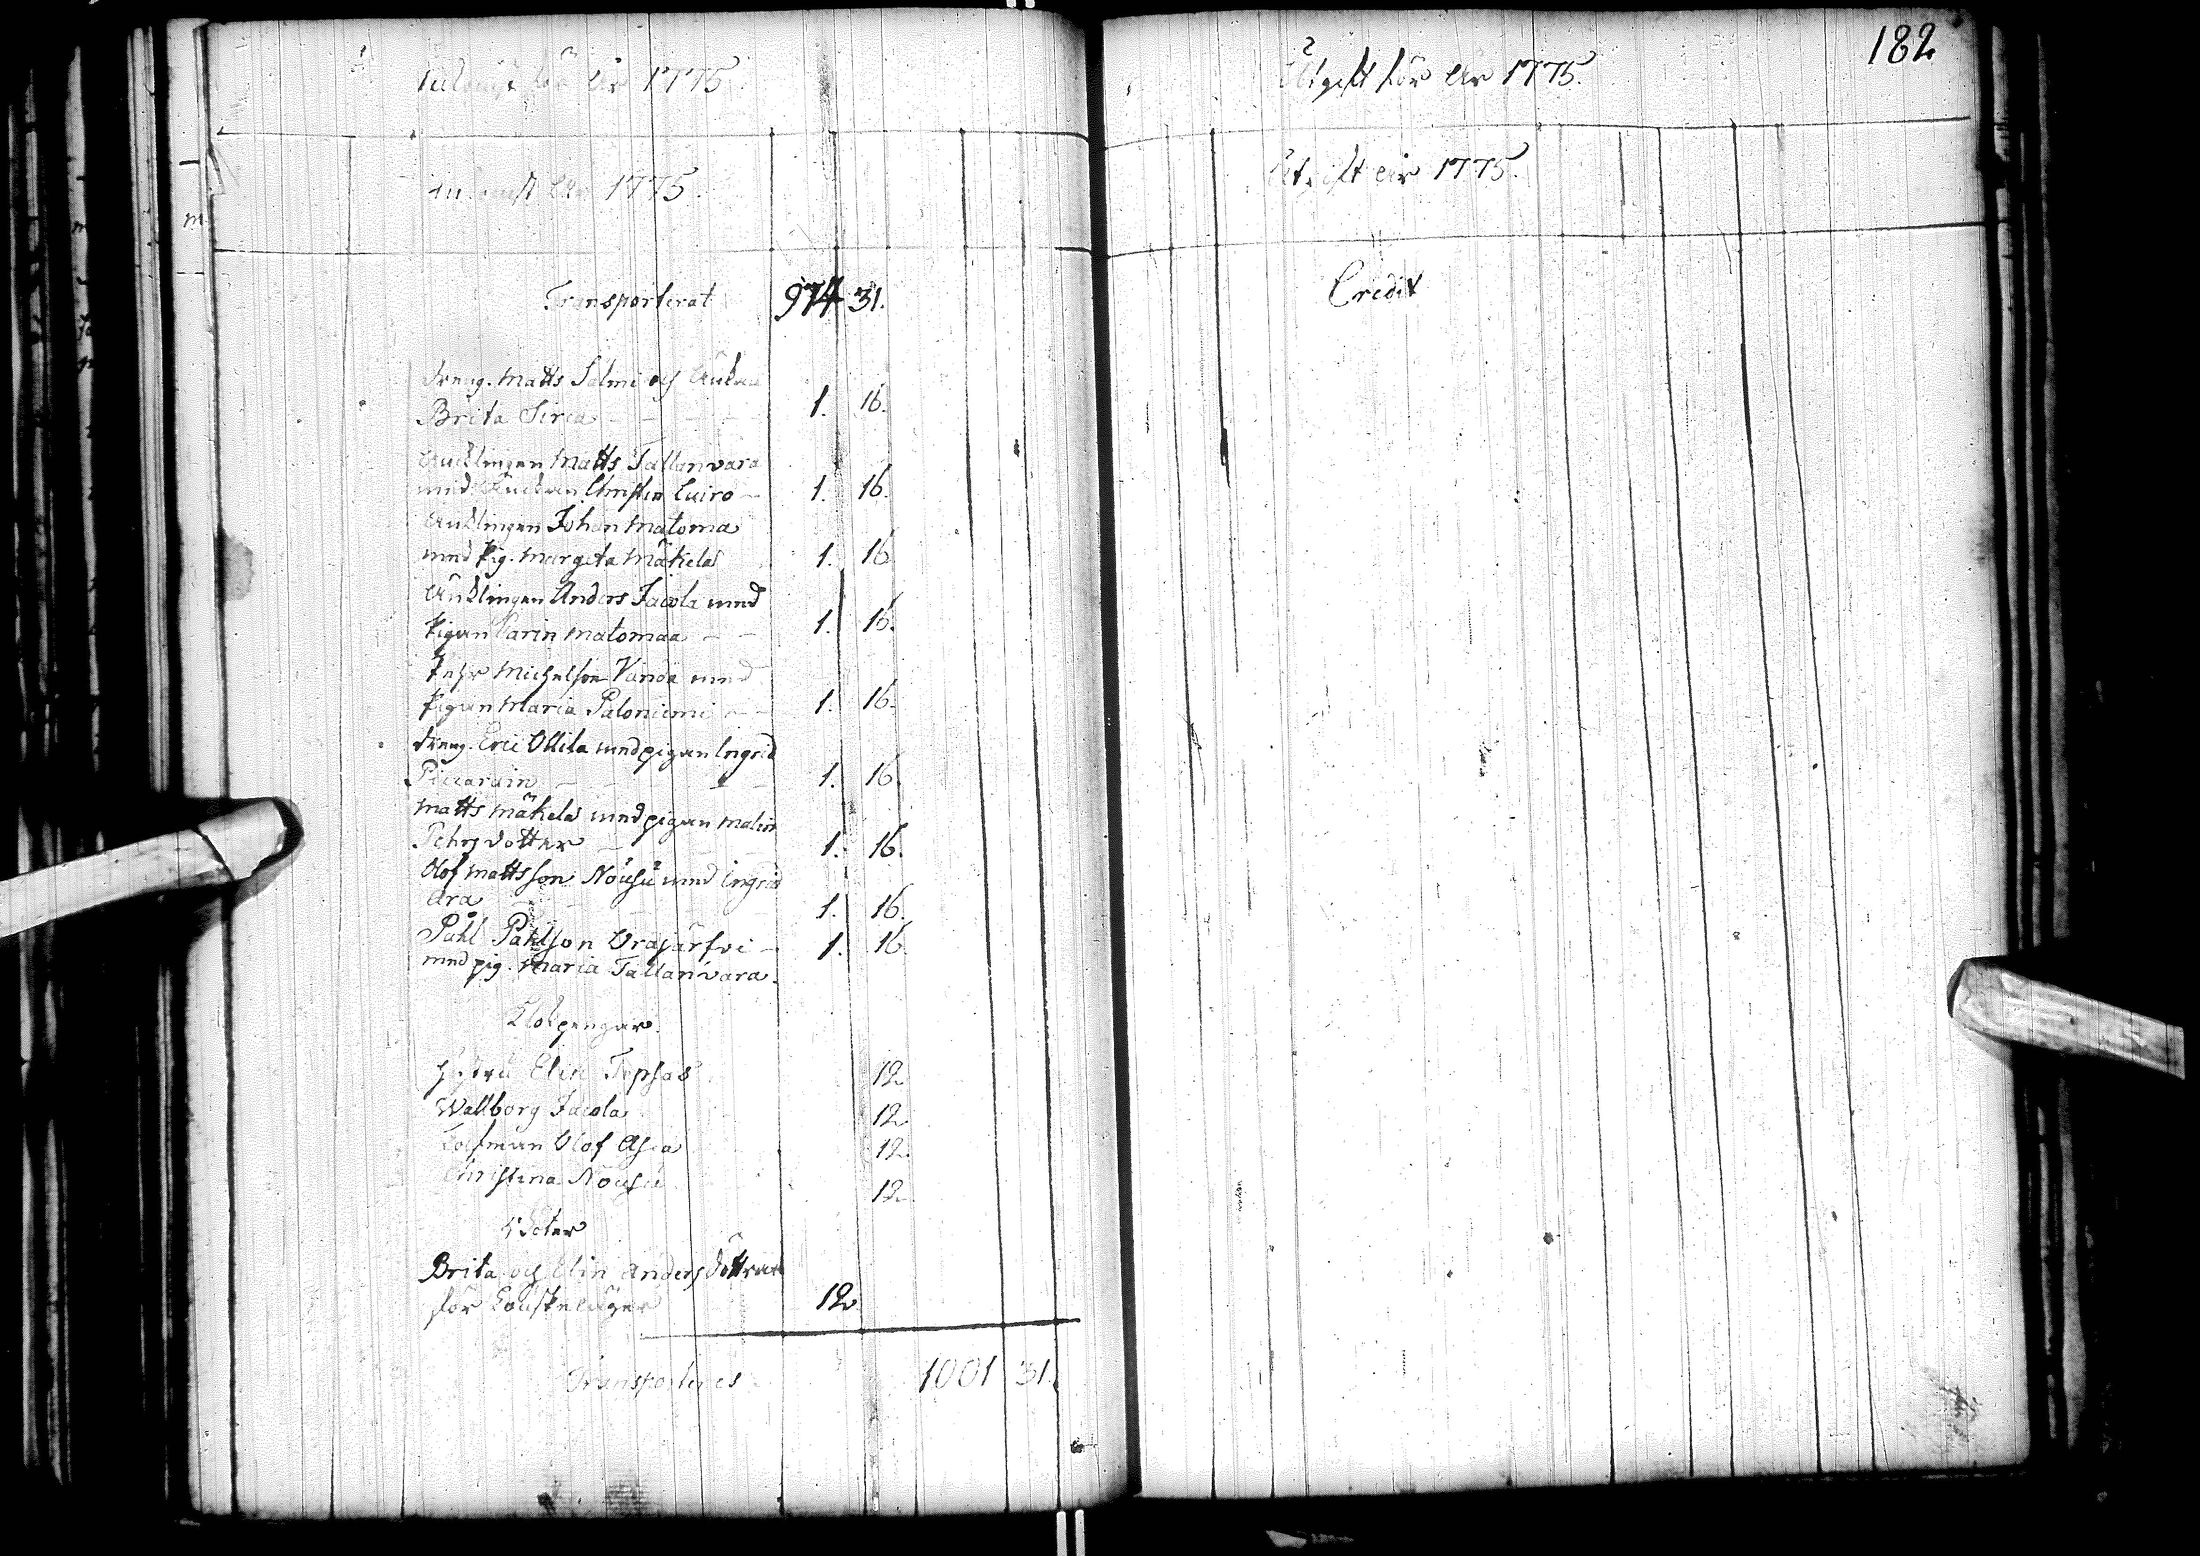 Inkomst för År 1775.
Inkomst År 1775.
Transporterat 974 31.
Dreng. Matts Salmi och Änkan
Brita Sirca 1. 16.
Änklingen Matts Tallanvara
med Änkan Christin Luiro 1. 16.
Änklingen Johan Matoma
med Pig. Margeta Mäkelä 1. 16
Änklingen Anders Jacola med
Pigan Carin Matomaa 1. 16.
Pehr Michelson Vanöa med
Pigan Maria Paloniemi 1. 16.
Dreng. Eric Ollila med pigan Ingrid
Piccarain 1. 16.
Matts Mäkelä med pigan Malin
Pehrsdotter 1. 16.
Olof Mattsson Nousu med Ingrid
Ara 1. 16.
Påhl Påhlson Orajärfvi 1. 16.
med pig. Maria Tallanvara.
Klokpengar.
Hustru Elin Topsas 12
Wallborg Jacola 12
Olof Asca 12.
Christina Nousu 12
Böter
Brita och Elin Andersdöttrar
för 12
Transporteres 1001 31.
182
Utgift för År 1775.
Utgift År 1775.
Credit